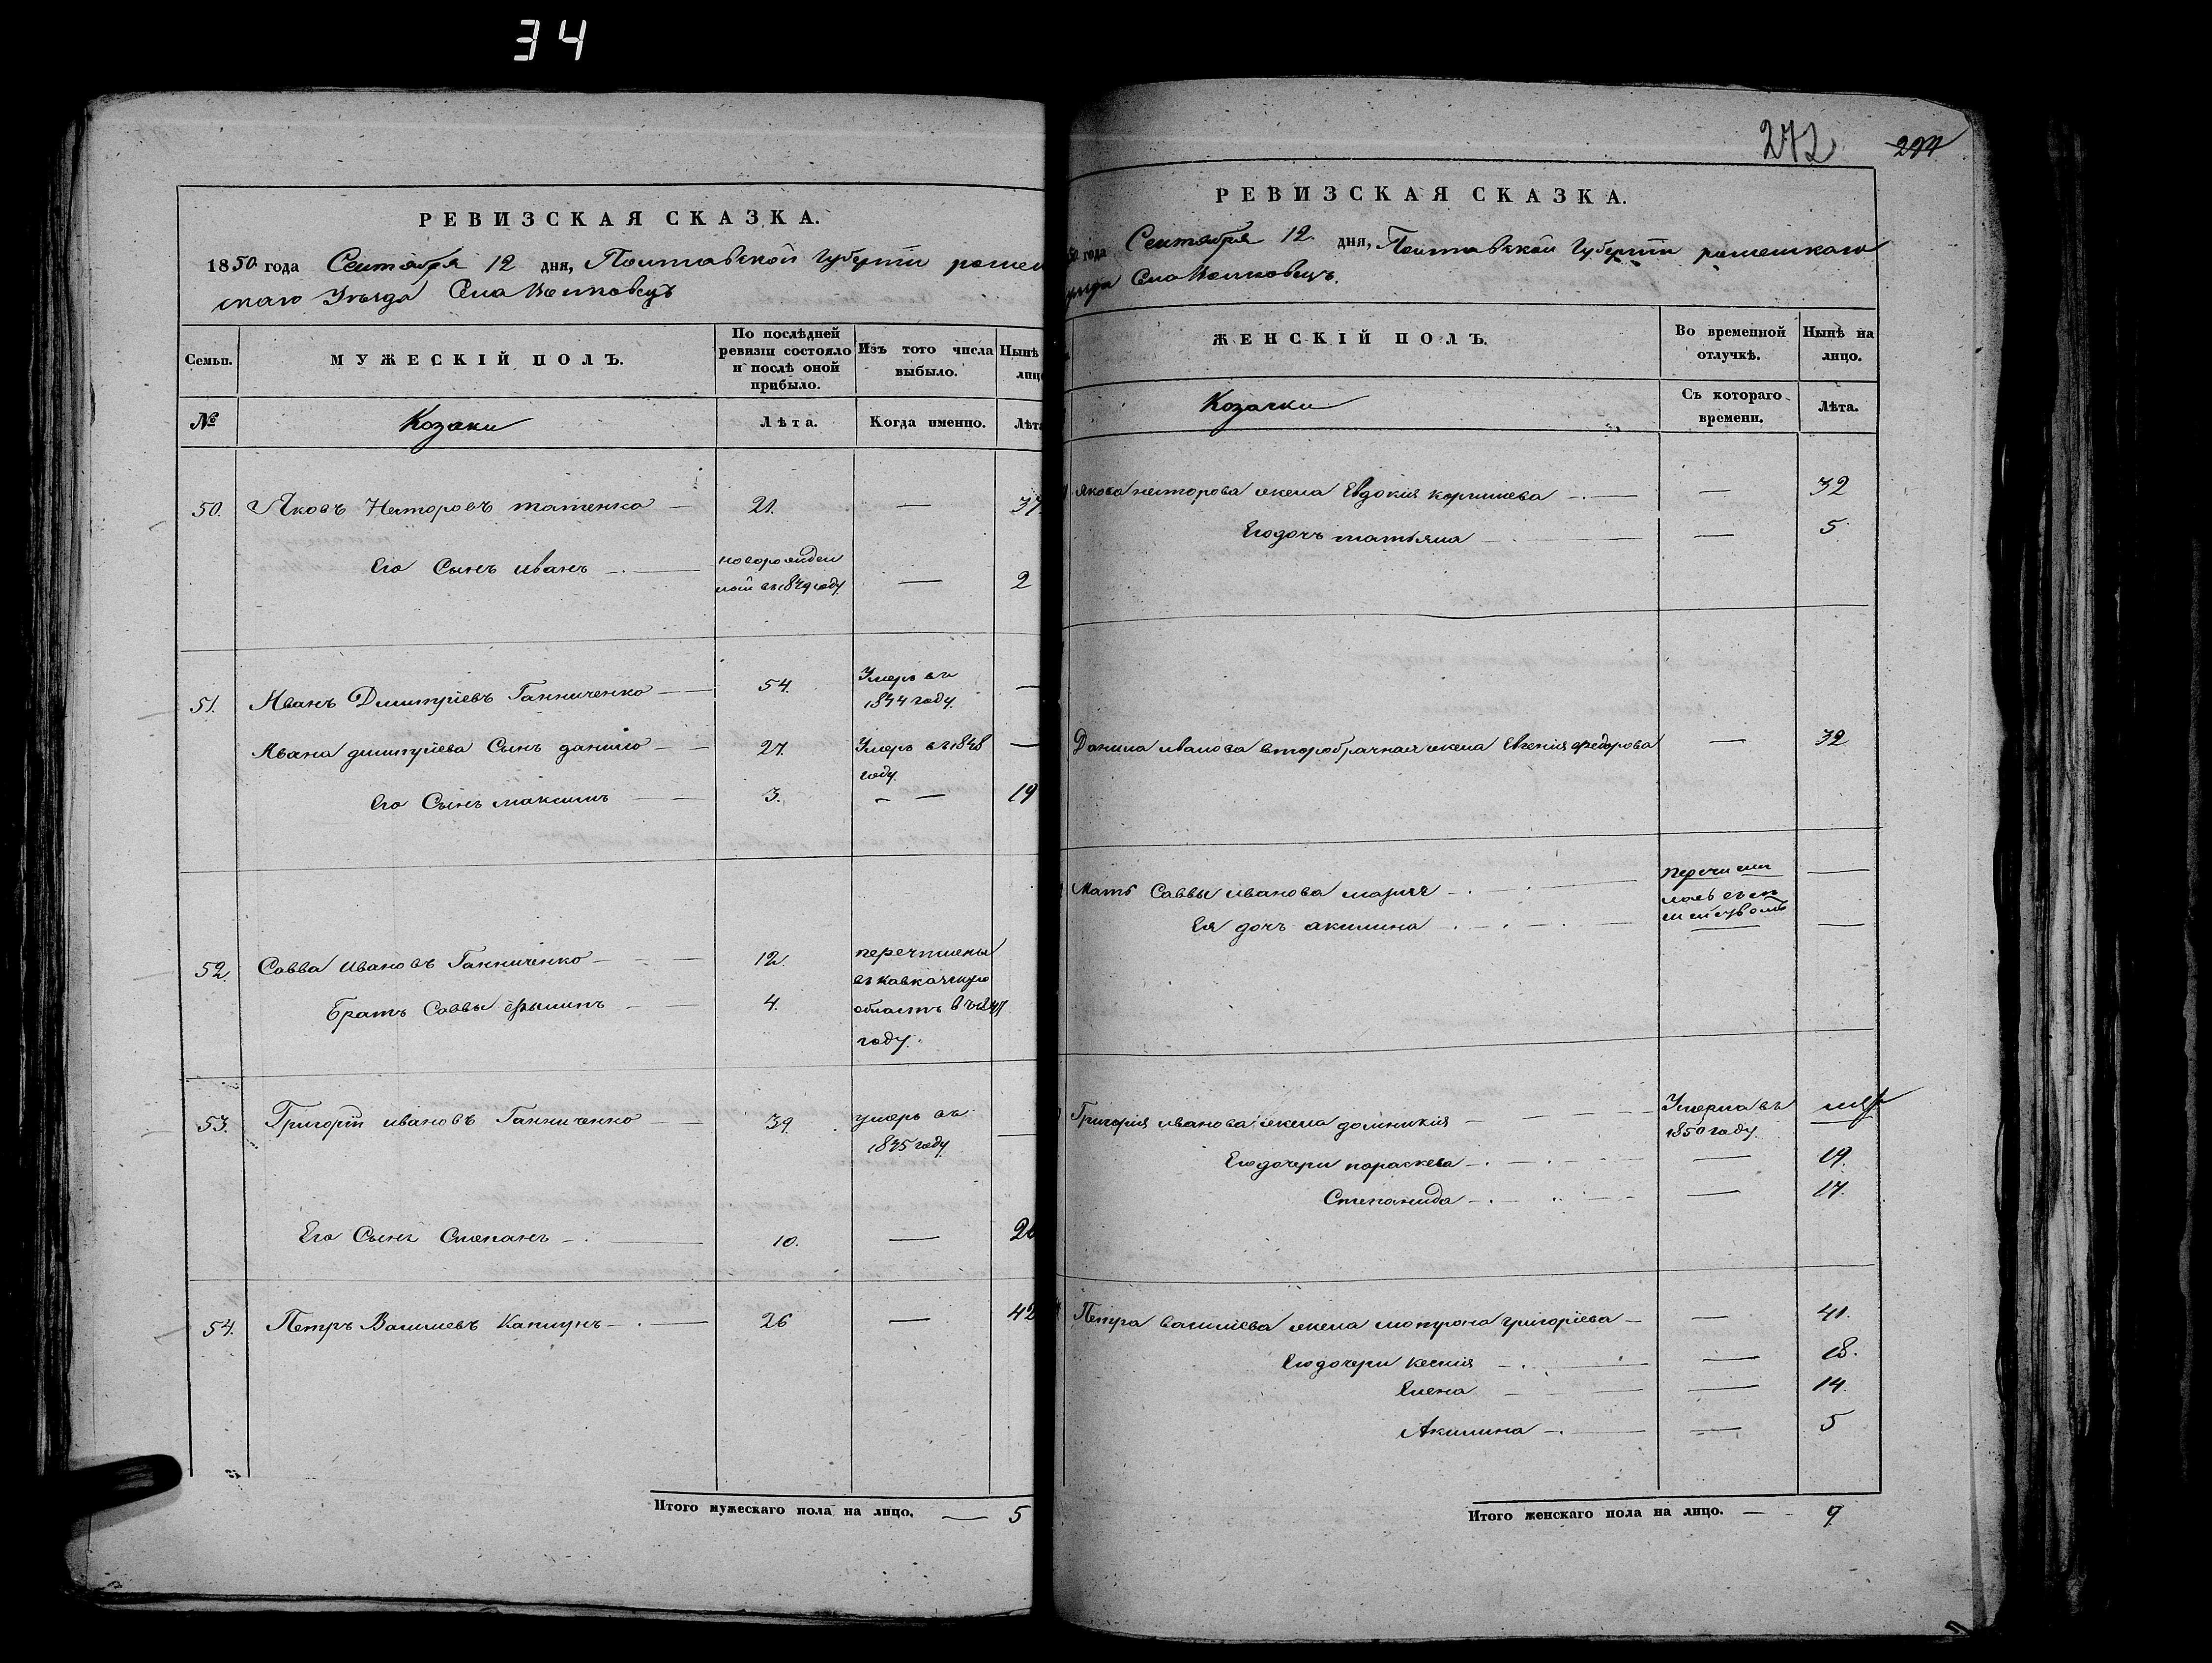 34
РЕВИЗСКАЯ СКАЗКА.
1850 года Сентября 12 дня, Полтавской Губерніи ромен
скаго Уѣзда Села Волковецъ
Семьи.
МУЖЕСКІЙ ПОЛЪ.
По послѣдней ревизіи состояло и послѣ оной прибыло.
Изъ того числа выбыло.
Нынѣ
лиц
№
Козаки
Лѣта.
Когда именно.
Лѣт
50. Яковъ Несторовъ 21. — 37
Его Сынъ иванъ новорожден
ной въ 1849 году — 2
51. Иванъ Дмитріевъ Ганниченко 54. Умеръ въ
1844 году. —
Ивана дмитріева Сынъ данило 27. Умеръ въ 1848
году. —
Его Сынъ максимъ 3. — 19
52. Савва Ивановъ Ганниченко 12. перечислены
въ кавказскую
Братъ Саввы 4. область въ
году.
53. Григорій ивановъ Ганниченко 39. умеръ въ
1845 году. —
Его Сынъ Степанъ 10. — 26
54. Петръ Василіевъ Каплунъ 26 — 42
Итого мужескаго пола на лицо. — 5
272 274
РЕВИЗСКАЯ СКАЗКА.
50 года Сентября 12. дня, Полтавской Губерніи роменскаго
уѣзда Села Волковецъ.
ЖЕНСКІЙ ПОЛЪ.
Во временной отлучкѣ.
Нынѣ на лицо.
Козачки
Съ котораго времени.
Лѣта.
Якова несторова жена Евдокія — 32
Его дочь татьяна — 5
Данила иванова второбрачная жена Евгенія федорова — 32
Мать Саввы иванова марія перечисли
лась съ —
Ея дочь акилина —
Григорія иванова жена домникія Умерла въ
1850 году.
Его дочери параскева — 19.
Степанида — 17.
Петра василіева жена мотрона григоріева — 41.
Его дочери ксенія — 18.
Елена — 14.
Акилина — 5
Итого женскаго пола на лицо. — 9